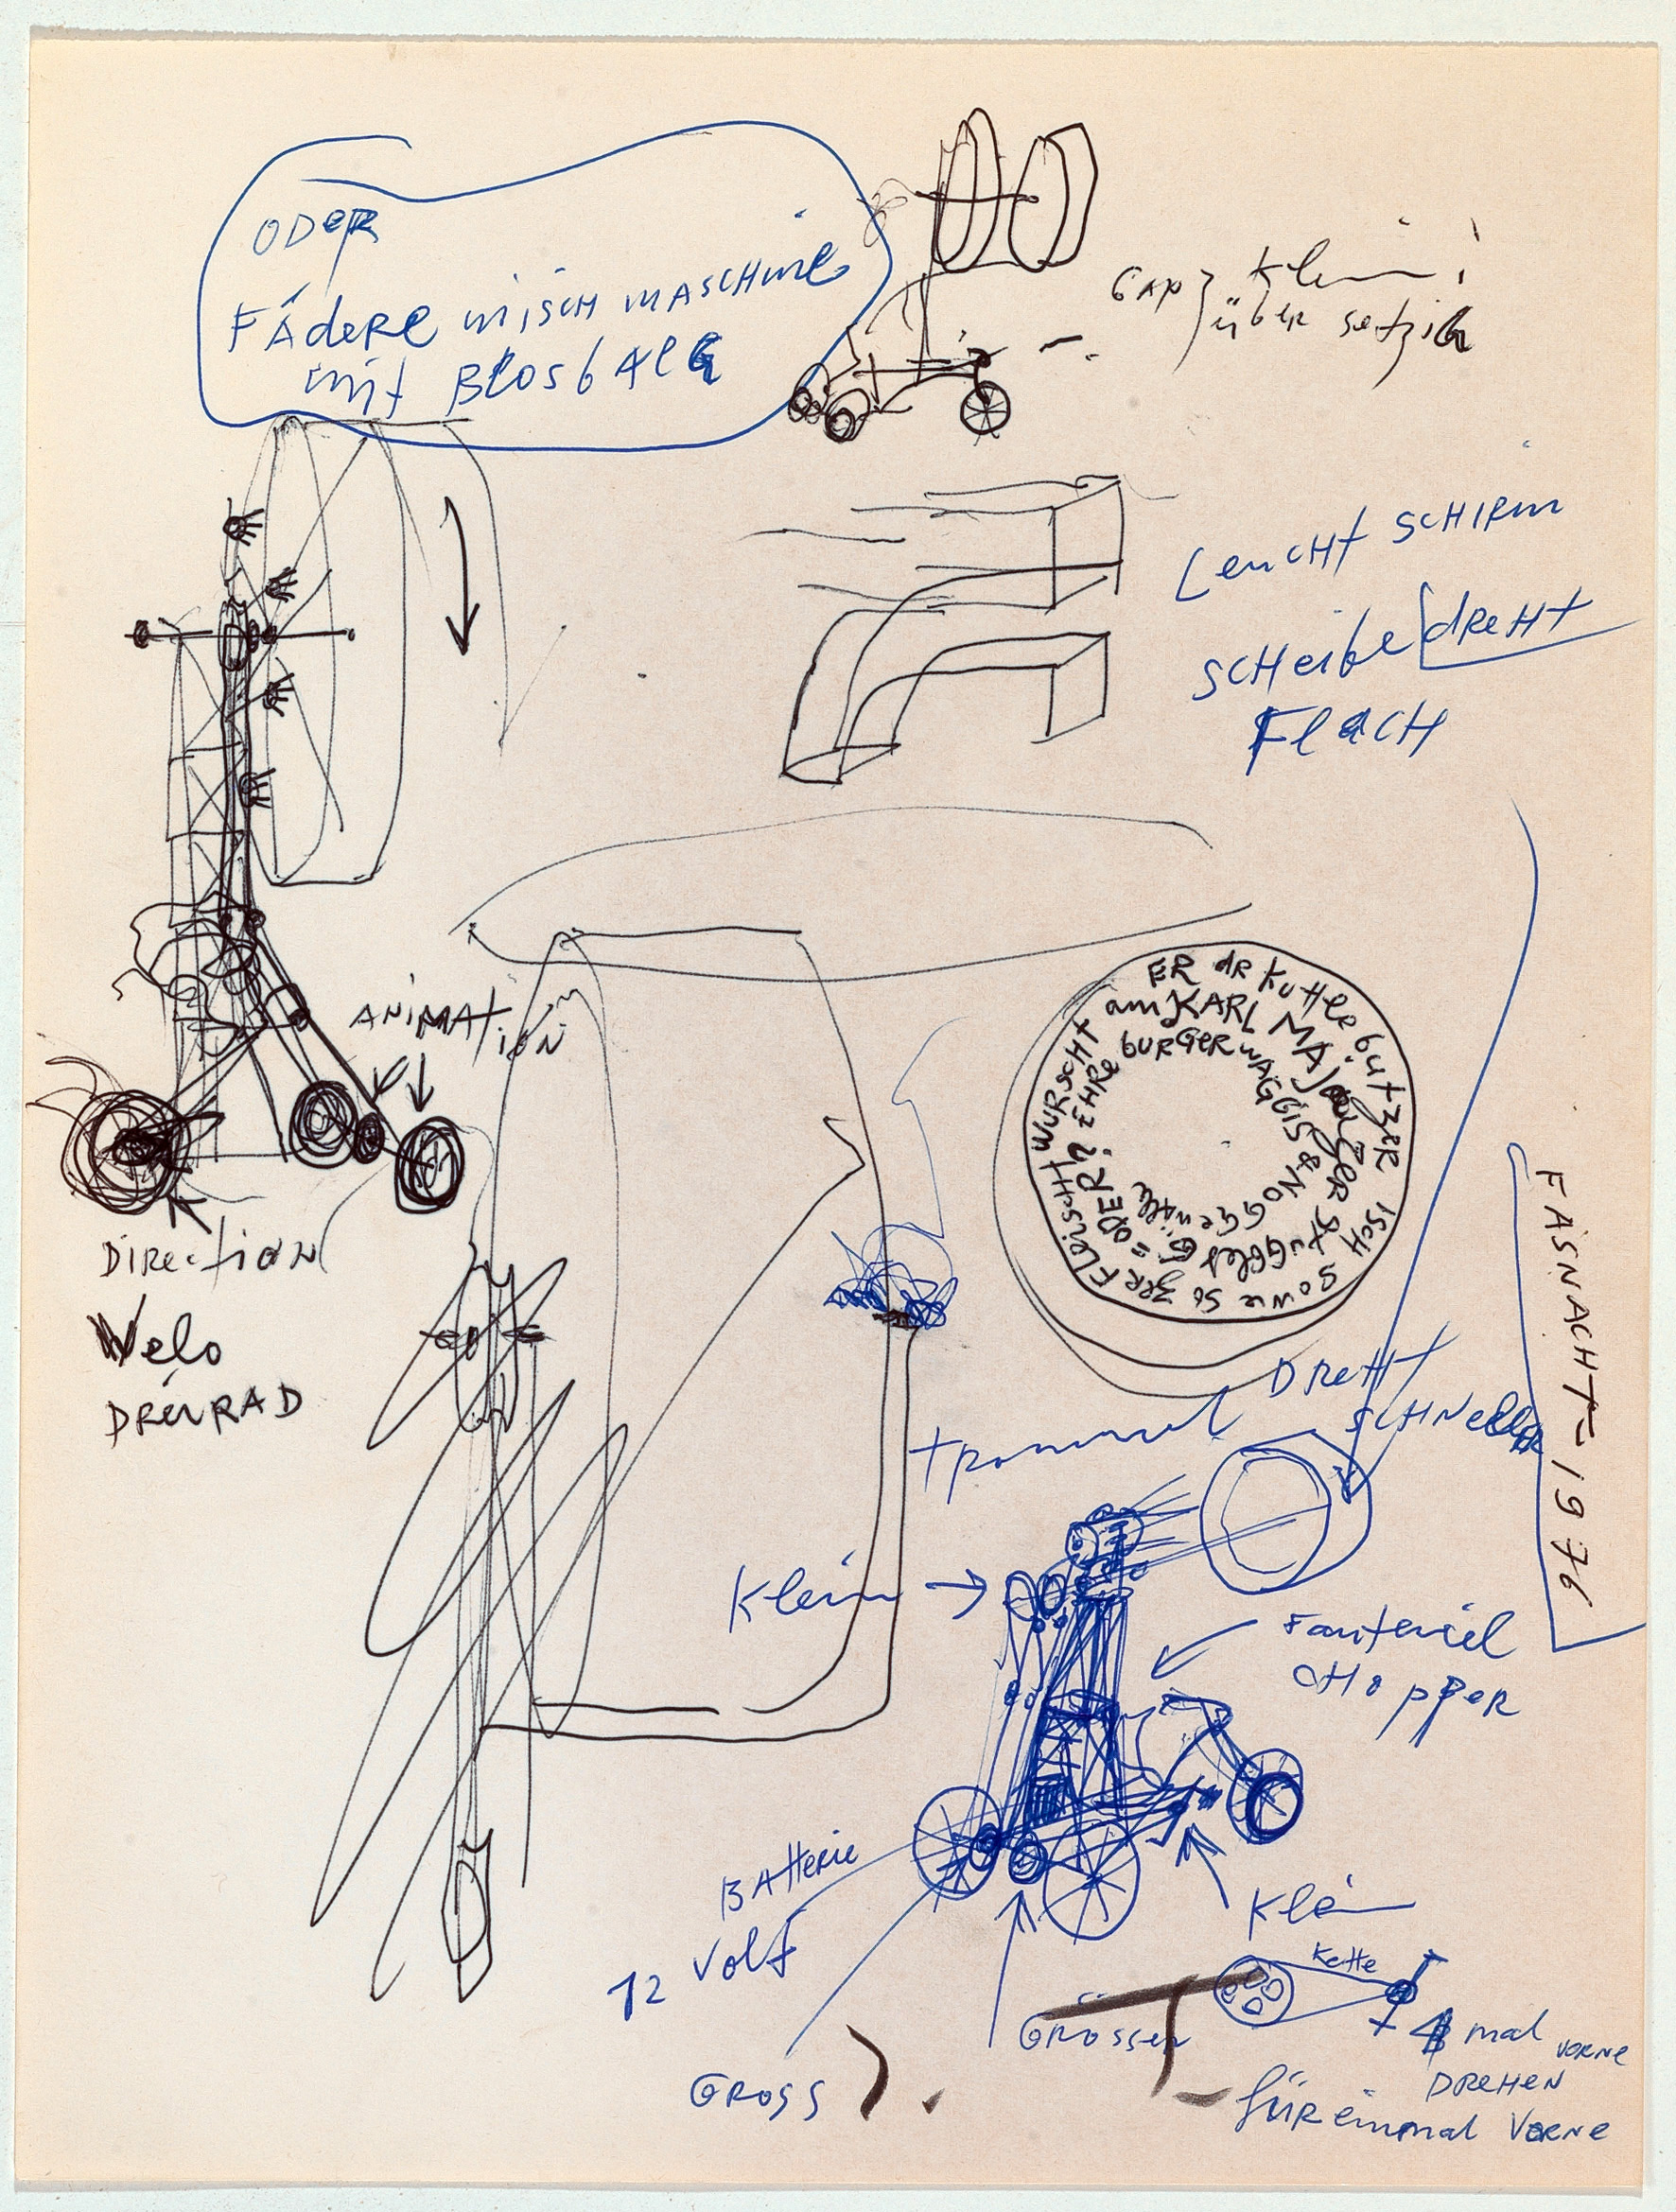 ODER
FÄdeRe misCH mASCHine
mit BlosbAlG
Klein!
über setzig
LeuCHt SCHIRm
SCHeibe dReHt
FlACH
ANiMAtiON
DiRectiON
Velo
DREURAD
ER dR Kuttlebutzer ISCH sowie so zer FLeiSCHt WURSCHT
am KARL MA
bURGeR WAGGIS & NO
ODER? EHRE
FASNACHT = 1976
DReHt
SCHNelleR
tRommel
Klein
Fauteuiel
CHopper
BAtteRie
12 Volt
Klein
Kette
GROSSER
mal VORNe
DReHeN
füR einmal VoRNe
GROSS